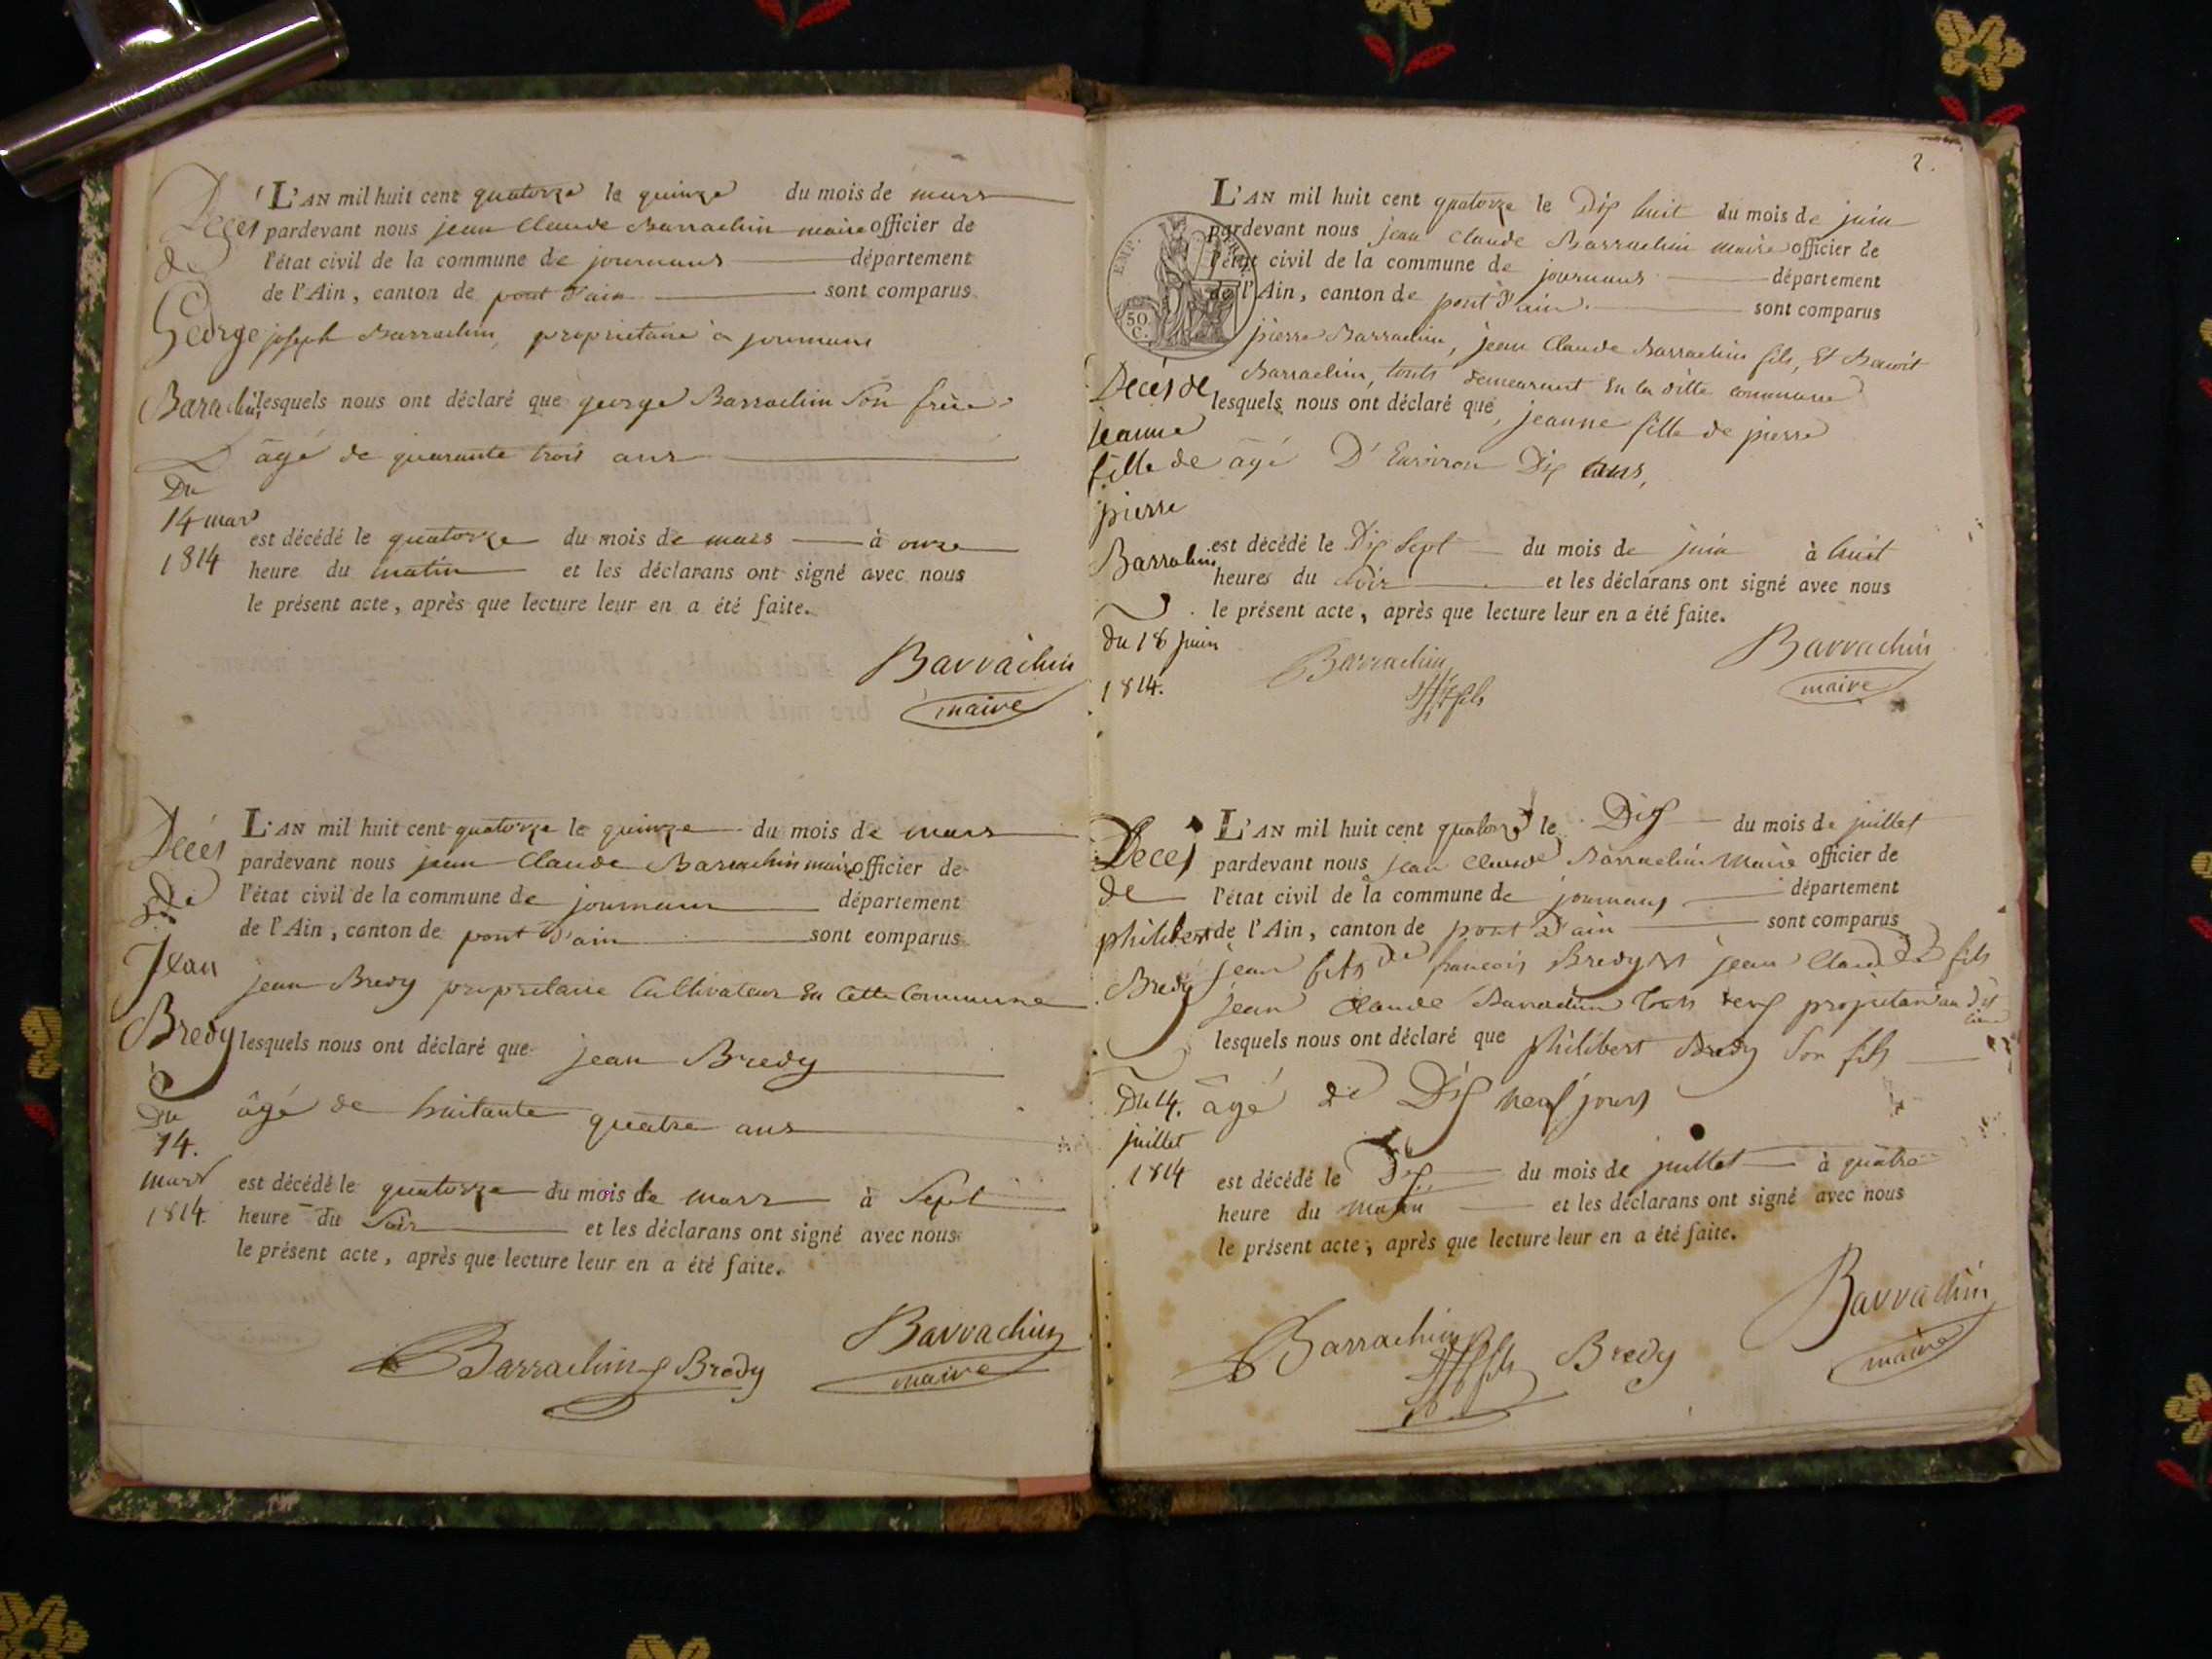 L'AN mil huit cent quatorze le quinze du mois de mars
pardevant nous jean Claude Barrachin maire officier de
l'état civil de la commune de journans département
de l'Ain, canton de pont d'ain sont comparus
joseph Barrachin, proprietaire à journans
lesquels nous ont déclaré que george Barrachin Son frère
âgé de quarante trois ans
est décédé le quatorze du mois de mars à onze
heure du matin et les déclarans ont signé avec nous
le présent acte, après que lecture leur en a été faite.
Barrachin
maire
Decès
de
George
Barachin
Du
14 mars
1814
L'AN mil huit cent quatorze le quinze du mois de mars
pardevant nous jean Claude Barrachin maire officier de
l'état civil de la commune de journans département
de l'Ain, canton de pont d'ain sont comparus
jean Bredy proprietaire Cultivateur En Cette Commune
lesquels nous ont déclaré que jean Bredy
âgé de huitante quatre ans
est décédé le quatorze du mois de mars à Sept
heure du Soir et les déclarans ont signé avec nous
le présent acte, après que lecture leur en a été faite.
Barrachin Bredy Barrachin
maire
Decès
de
Jean
Bredy
Du
14.
mars
1814.
2.
L'AN mil huit cent quatorze le Dix huit du mois de juin
pardevant nous jean Claude Barrachin maire officier de
l'état civil de la commune de journans département
de l'Ain, canton de pont d'ain sont comparus
pierre Barrachin, jean Claude Barrachin fils, Et Benoit
Barrachin, touts demeurant En la ditte commune
lesquels nous ont déclaré que, jeanne fille de pierre
âgé D'Environ Dix ans,
est décédé le Dix Sept du mois de juin à huit
heures du Soir et les déclarans ont signé avec nous
le présent acte, après que lecture leur en a été faite.
Barrachin fils Barrachin
maire
EMP.
50
C.
Decès de
jeanne
fille de
pierre
Barrachin
du 18 juin
1814.
L'AN mil huit cent quatorze le Dix du mois de juillet
pardevant nous jean Claude Barrachin Maire officier de
l'état civil de la commune de journans département
de l'Ain, canton de pont d'ain sont comparus
jean fils de francois Bredy Et jean Claude fils
jean Claude Barrachin touts deux proprietaire au dit lieu
lesquels nous ont déclaré que philibert Bredy Son fils
âgé de Dix neuf jours
est décédé le Dix du mois de juillet à quatre
heure du Matin et les déclarans ont signé avec nous
le présent acte, après que lecture leur en a été faite.
Barrachin fils Bredy Barrachin
maire
Deces
de
philibert
Bredy
Du 14.
juillet
1814